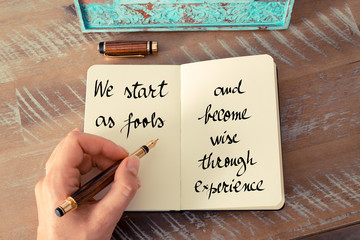 We start
as fools
and
become
wise
through
experience